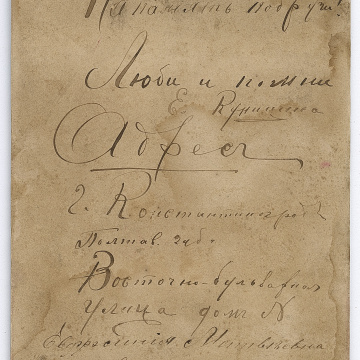 На память подруги!
Люби и помни
Е. Кунишина
Адресъ
г. Константиноград
Полтав. губ.
Восточно-бульварная
улица домъ N
Евфросинія Матвѣевна